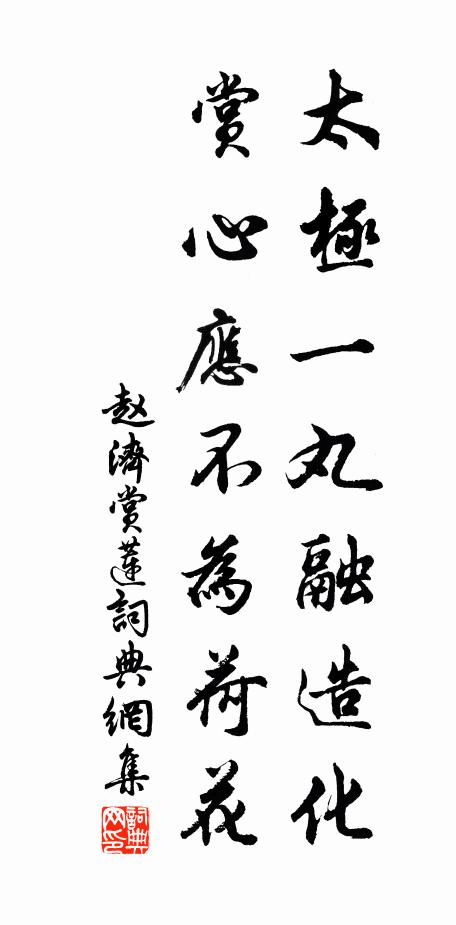 太極一丸融造化
賞心應不為荷花
赵濟賞蓮詞典網集
詞典網印